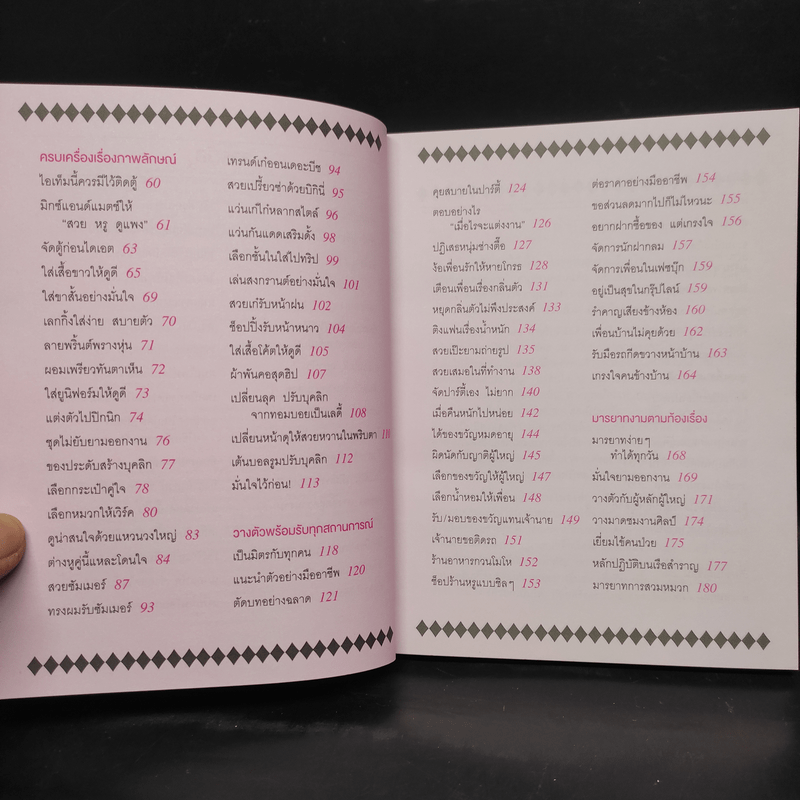 ครบเครื่องเรื่องภาพลักษณ์
ไอเท็มนี้ควรมีไว้ติดตู้ 60
มิกซ์แอนด์แมตซ์ให้
"สวย หรู ดูแพง" 61
จัดตู้ก่อนไดเอต 63
ใส่เสื้อขาวให้ดูดี 65
ใส่ขาสั้นอย่างมั่นใจ 69
เลกกิ้งใส่ง่าย สบายตัว 70
ลายพริ้นต์พรางหุ่น 71
ผอมเพรียวทันตาเห็น 72
ใส่ยูนิฟอร์มให้ดูดี 73
แต่งตัวไปปิกนิก 74
ชุดไม่ยับยามออกงาน 76
ของประดับสร้างบุคลิก 77
เลือกกระเป๋าคู่ใจ 78
เลือกหมวกให้เวิร์ค 80
ดูน่าสนใจด้วยแหวนวงใหญ่ 83
ต่างหูคู่นี้แหละโดนใจ 84
สวยซัมเมอร์ 87
ทรงผมรับซัมเมอร์ 93
เทรนด์เก๋ออนเดอะบีช 94
สวยเปรี้ยวซ่าด้วยบิกินี่ 95
แว่นเก๋ไก๋หลากสไตล์ 96
แว่นกันแดดเสริมดั้ง 98
เลือกชั้นในใส่ไปทริป 99
เล่นสงกรานต์อย่างมั่นใจ 101
สวยเก๋รับหน้าฝน 102
ช็อปปิ้งรับหน้าหนาว 104
ใส่เสื้อโค้ตให้ดูดี 105
ผ้าพันคอสุดฮิป 107
เปลี่ยนลุค ปรับบุคลิก
จากทอมบอยเป็นเลดี้ 108
เปลี่ยนหน้าดุให้สวยหวานในพริบตา 110
เต้นบอลรูมปรับบุคลิก 112
มั่นใจไว้ก่อน! 113
วางตัวพร้อมรับทุกสถานการณ์
เป็นมิตรกับทุกคน 118
แนะนำตัวอย่างมืออาชีพ 120
ตัดบทอย่างฉลาด 121
คุยสบายในปาร์ตี้ 124
ตอบอย่างไร
"เมื่อไรจะแต่งงาน" 126
ปฏิเสธหนุ่มช่างตื๊อ 127
ง้อเพื่อนรักให้หายโกรธ 128
เตือนเพื่อนเรื่องกลิ่นตัว 131
หยุดกลิ่นตัวไม่พึงประสงค์ 133
ติงแฟนเรื่องน้ำหนัก 134
สวยเป๊ะยามถ่ายรูป 135
สวยเสมอในที่ทำงาน 138
จัดปาร์ตี้เอง ไม่ยาก 140
เมื่อคืนหนักไปหน่อย 142
ได้ของขวัญหมดอายุ 144
ผิดนัดกับญาติผู้ใหญ่ 145
เลือกของขวัญให้ผู้ใหญ่ 147
เลือกน้ำหอมให้เพื่อน 148
รับ/มอบของขวัญแทนเจ้านาย 149
เจ้านายขอติดรถ 151
ร้านอาหารกวนโมโห 152
ช็อปร้านหรูแบบชิลๆ 153
ต่อราคาอย่างมืออาชีพ 154
ขอส่วนลดมากไปก็ไม่ไหวนะ 155
อยากฝากซื้อของ แต่เกรงใจ 156
จัดการนักฝากลม 157
จัดการเพื่อนในเฟซบุ๊ก 159
อยู่เป็นสุขในกรุ๊ปไลน์ 159
รำคาญเสียงข้างห้อง 160
เพื่อนบ้านไม่คุยด้วย 162
รับมือรถกีดขวางหน้าบ้าน 163
เกรงใจคนข้างบ้าน 164
มารยาทงามตามท้องเรื่อง
มารยาทง่ายๆ
ทำได้ทุกวัน 168
มั่นใจยามออกงาน 169
วางตัวกับผู้หลักผู้ใหญ่ 171
วางมาดชมงานศิลป์ 174
เยี่ยมไข้คนป่วย 175
หลักปฏิบัติบนเรือสำราญ 177
มารยาทการสวมหมวก 180